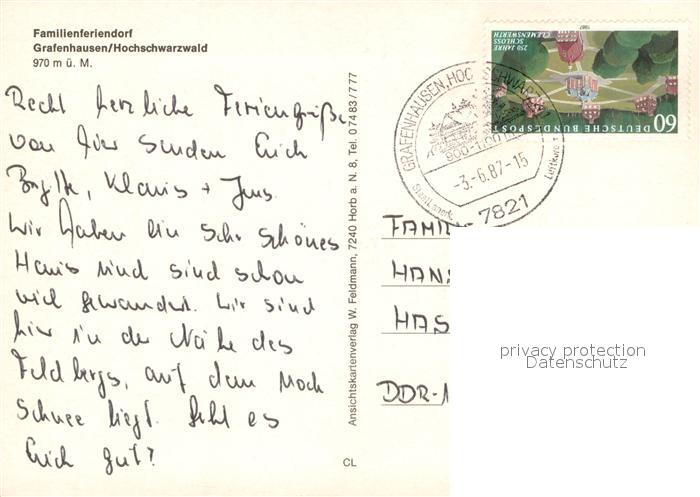 Familienferiendorf
Grafenhausen/Hochschwarzwald
970 m ü. M.
Recht herzliche Feriengrüße
von hier senden Euch
Brigitte, Klaus + Jens.
Wir haben ein sehr schönes
Haus und sind schon
viel gewandert. Wir sind
hier in der Nähe des
Feldbergs, auf dem noch
Schnee liegt. Geht es
Euch gut?
CL
Ansichtskartenverlag W. Feldmann, 7240 Horb a. N. 8, Tel. 0 74 83 / 7 77
1987
250 JAHRE
SCHLOSS
CLEMENSWERTH
60
DEUTSCHE BUNDESPOST
GRAFENHAUSEN, HOCHSCHWARZWALD
-3.-6.87-15
7821
Luftkurort
FAMI
HAN
HAS
DDR-
privacy protection
Datenschutz